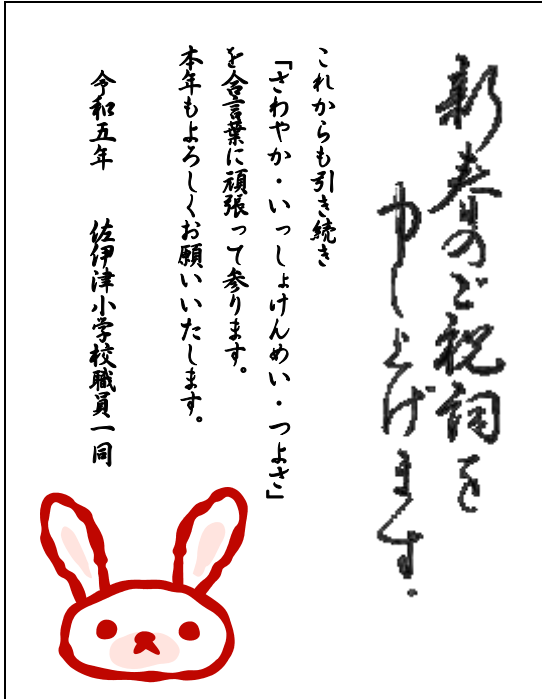 新春のご祝詞を
申し上げます.
これからも引き続き
「さわやか・いっしょけんめい・つよさ」
を合言葉に頑張って参ります。
本年もよろしくお願いいたします。
令和五年　佐伊津小学校職員一同